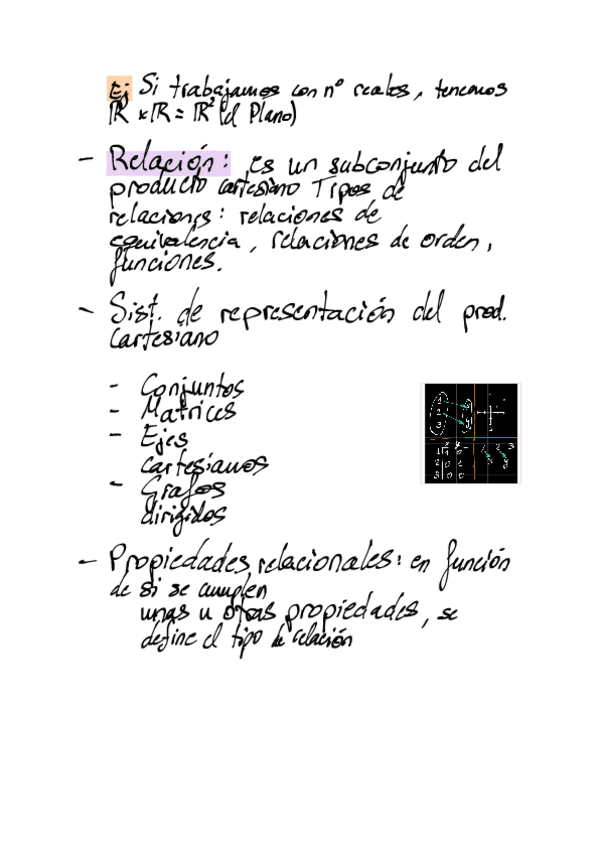 Ej Si trabajamos con nº reales, tenemos
ℝ x ℝ = ℝ² (el Plano)
- Relación: es un subconjunto del
producto cartesiano Tipos de
relaciones: relaciones de
equivalencia, relaciones de orden,
funciones.
- Sist. de representación del prod.
Cartesiano
- Conjuntos
- Matrices
- Ejes
cartesianos
- Grafos
dirigidos
- Propiedades relacionales: en función
de si se cumplen
unas u otras propiedades, se
define el tipo de relación